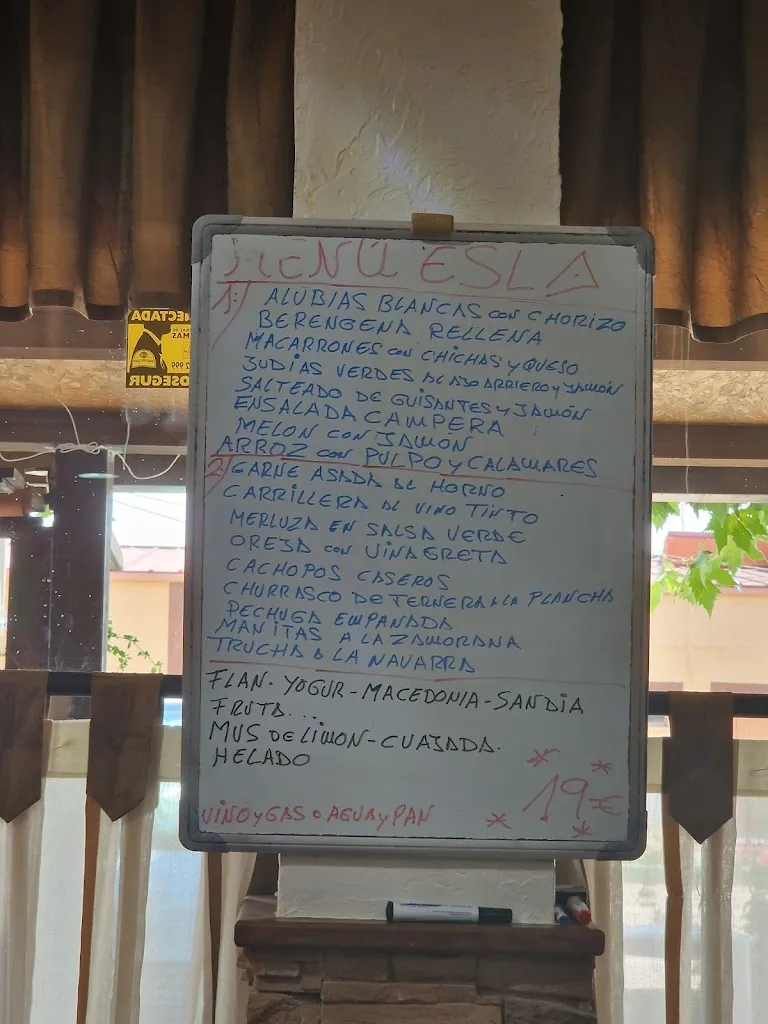 MENÚ ESLA
1º) ALUBIAS BLANCAS con CHORIZO
BERENGENA RELLENA
MACARRONES con CHICHAS y QUESO
JUDIAS VERDES AL AJO ARRIERO y JAMÓN
SALTEADO DE GUISANTES y JAMÓN
ENSALADA CAMPERA
MELON con JAMÓN
ARROZ con PULPO y CALAMARES
2) CARNE ASADA AL HORNO
CARRILLERA AL VINO TINTO
MERLUZA EN SALSA VERDE
OREJA con VINAGRETA
CACHOPOS CASEROS
CHURRASCO DE TERNERA A LA PLANCHA
PECHUGA EMPANADA
MANITAS A LA ZAMORANA
TRUCHA A LA NAVARRA
FLAN. YOGUR - MACEDONIA - SANDIA
FRUTA...
MUS DE LIMON - CUAJADA.
HELADO
19€
VINO y GAS o AGUA y PAN